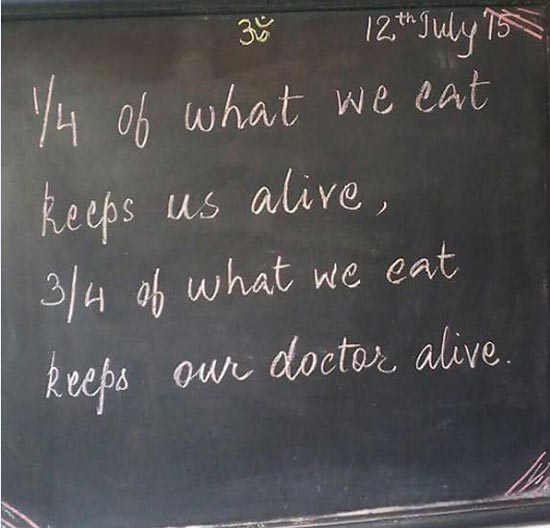 ॐ 12th July 15
1/4 of what we eat
keeps us alive,
3/4 of what we eat
keeps our doctor alive.